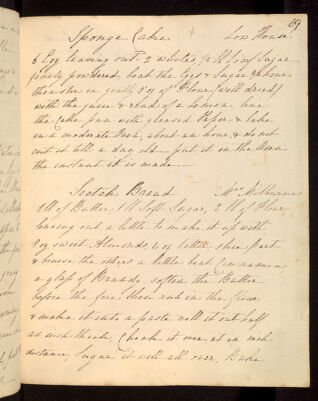 69
Sponge Cake Low House
6 Egg leaving out 2 whites, ½ lb loaf Sugar
finely powdered beat the Eggs & Sugar ½ hour
then stir in 8 oz of Flour (well dried)
with the juice & rind of a Lemon. line
the cake pan with greased Paper & bake
in a moderate Oven, about an hour, & do not
cut it till a day old - put it in the Oven
the instant it is made
Scotch Bread Mrs
1 lb of Butter, 1 lb Soft Sugar, 2 lb of Flour
leaving out a little to make it up with
8 oz sweet Almonds, 4 oz bitter. shee part
& bruise the others a little beat Cinnamon,
a glass of Brandy, soften the Butter
before the fire then rub in the flour
& make it into a paste roll it out half
an inch thick, it over at an inch
distance, Sugar it well all over, Bake